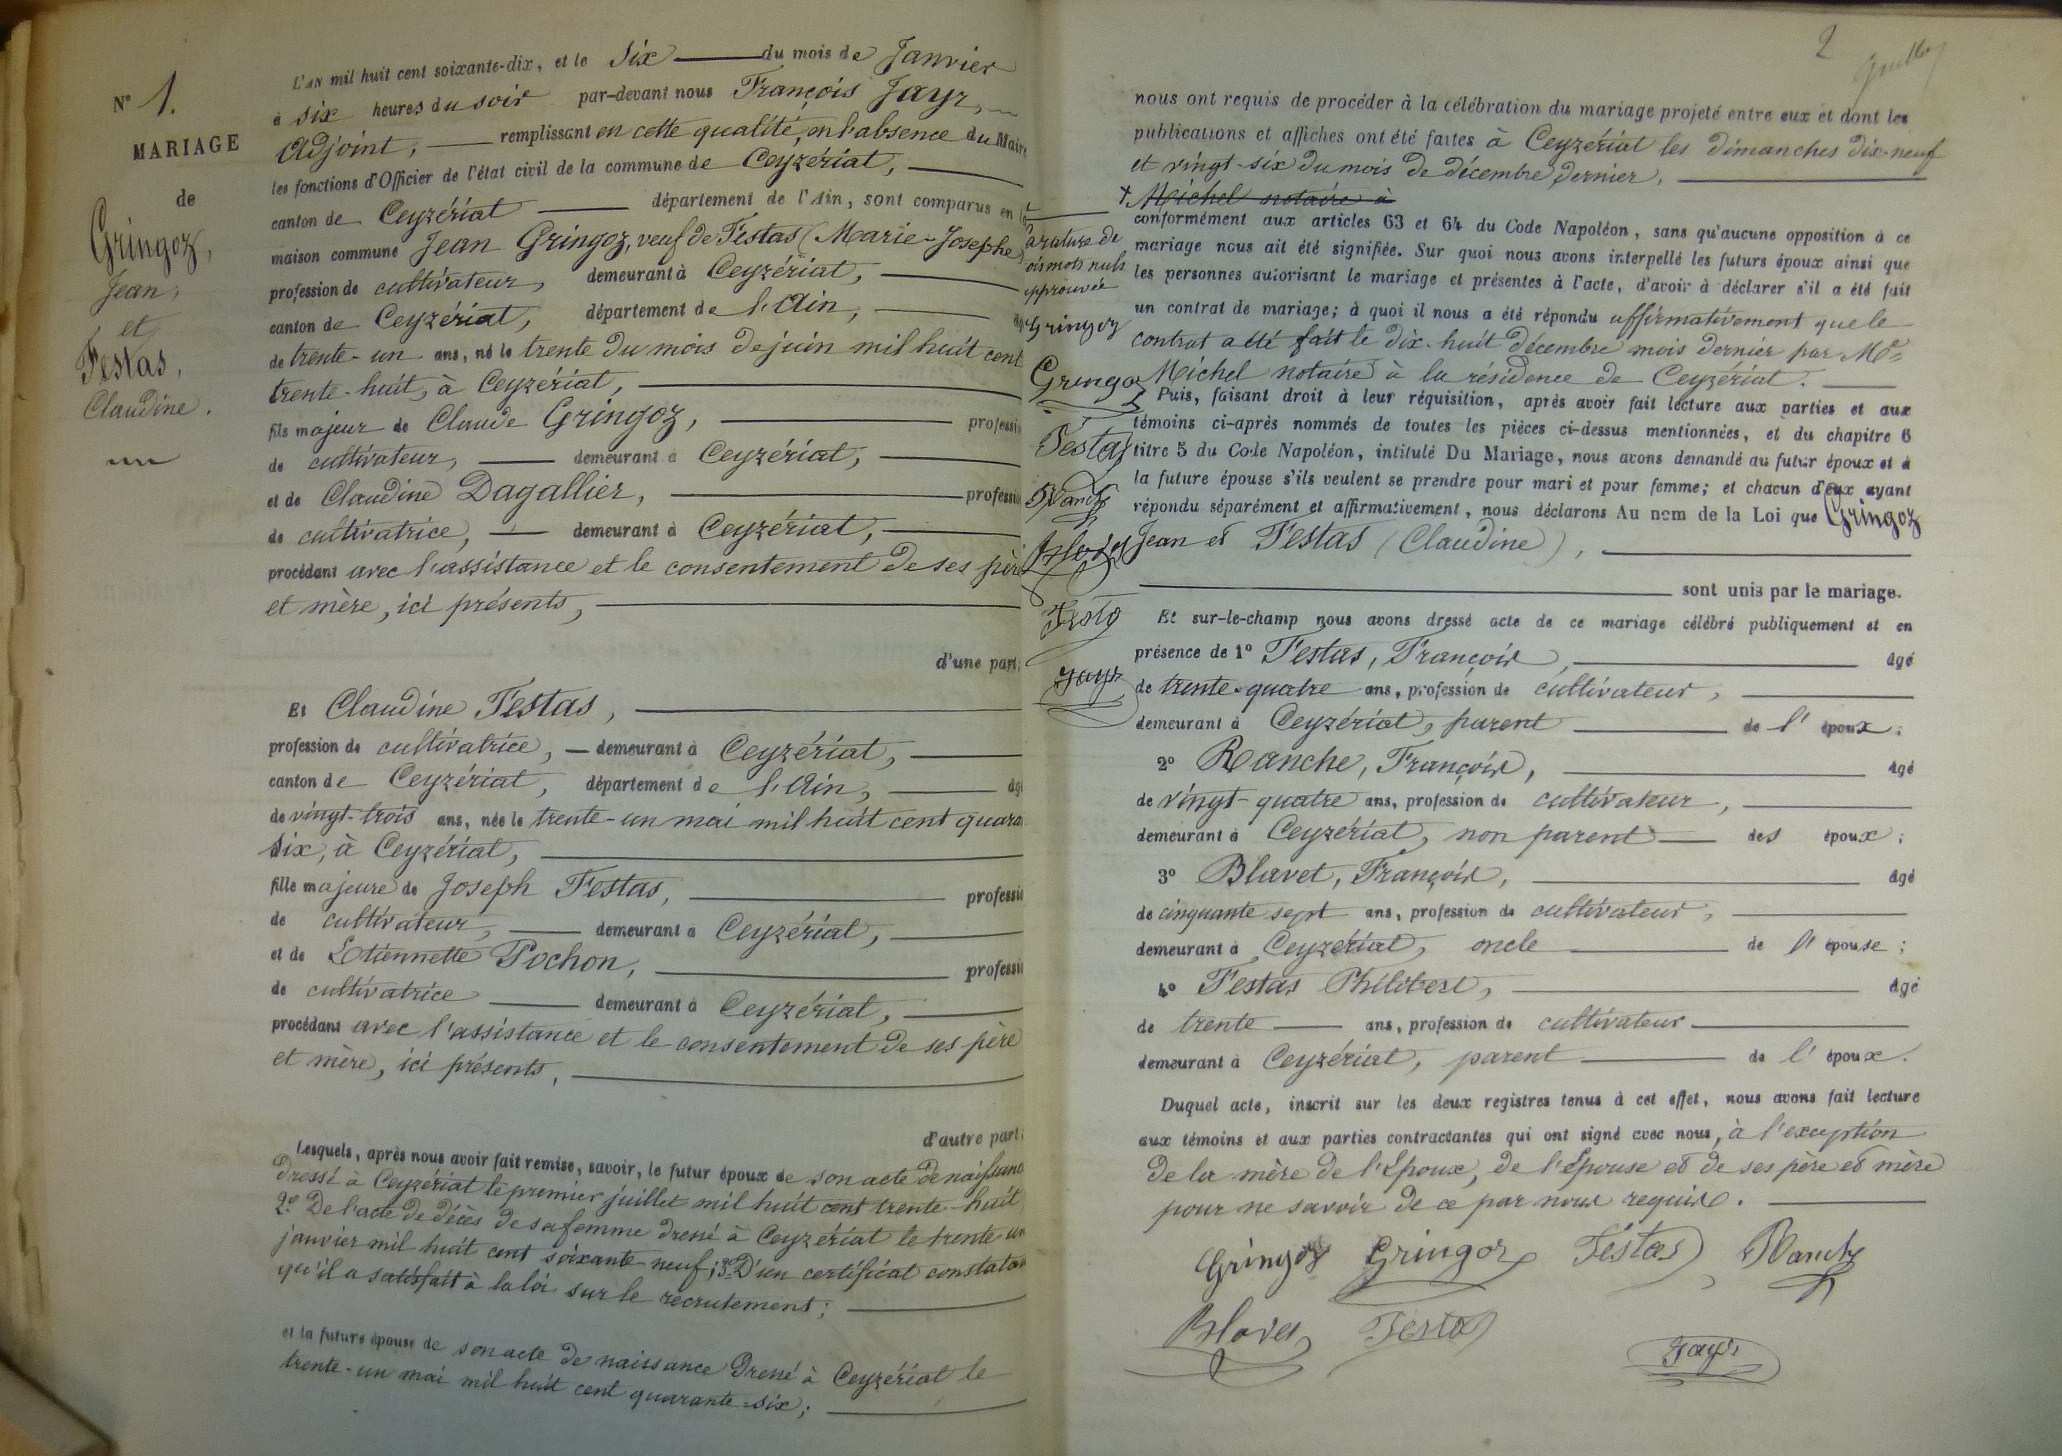 N° 1.
MARIAGE
de
Gringoz,
Jean,
et
Festas,
Claudine.
L'AN mil huit cent soixante-dix, et le Six du mois de Janvier
à six heures du soir par-devant nous François Jayr,
Adjoint, remplissant en cette qualité, en l'absence du Maire
les fonctions d'Officier de l'état civil de la commune de Ceyzériat,
canton de Ceyzériat département de l'Ain, sont comparus en la
maison commune Jean Gringoz, veuf de Festas (Marie-Josephe)
profession de cultivateur, demeurant à Ceyzériat,
canton de Ceyzériat, département de l'Ain,
de trente-un ans, né le trente du mois de juin mil huit cent
trente-huit, à Ceyzériat,
fils majeur de Claude Gringoz, professi
de cultivateur, demeurant à Ceyzériat,
et de Claudine Dagallier, professi
de cultivatrice, demeurant à Ceyzériat,
procédant avec l'assistance et le consentement de ses père
et mère, ici présents,
d'une part,
Et Claudine Festas,
profession de cultivatrice, demeurant à Ceyzériat,
canton de Ceyzériat, département de l'Ain, âgé
de vingt-trois ans, née le trente-un mai mil huit cent quara
six, à Ceyzériat,
fille majeure de Joseph Festas, professi
de cultivateur, demeurant à Ceyzériat,
et de Etiennette Pochon, professi
de cultivatrice demeurant à Ceyzériat,
procédant avec l'assistance et le consentement de ses père
et mère, ici présents,
d'autre part:
Lesquels, après nous avoir fait remise, savoir, le futur époux de son acte de naissanc
dressé à Ceyzériat le premier juillet mil huit cent trente-huit
2° De l'acte de décès de sa femme dressé à Ceyzériat le trente-un
janvier mil huit cent soixante neuf; 3° D'un certificat constatan
qu'il a satisfait à la loi sur le recrutement;
et la future épouse de son acte de naissance Dressé à Ceyzériat le
trente-un mai mil huit cent quarante-six;
2
nous ont requis de procéder à la célébration du mariage projeté entre eux et dont les
publications et affiches ont été faites à Ceyzériat les dimanches dix-neuf
et vingt-six du mois de décembre dernier,
+ Michel notaire à
conformément aux articles 63 et 64 du Code Napoléon, sans qu'aucune opposition à ce
mariage nous ait été signifiée. Sur quoi nous avons interpellé les futurs époux ainsi que
les personnes autorisant le mariage et présentes à l'acte, d'avoir à déclarer s'il a été fait
un contrat de mariage; à quoi il nous a été répondu affirmativement que le
contrat a été fait le dix-huit décembre mois dernier par Me
Michel notaire à la résidence de Ceyzériat.
Puis, faisant droit à leur réquisition, après avoir fait lecture aux parties et aux
témoins ci-après nommés de toutes les pièces ci-dessus mentionnées, et du chapitre 6
titre 5 du Code Napoléon, intitulé Du Mariage, nous avons demandé au futur époux et à
la future épouse s'ils veulent se prendre pour mari et pour femme; et chacun d'eux ayant
répondu séparément et affirmativement, nous déclarons Au nom de la Loi que Gringoz
Jean et Festas (Claudine),
sont unis par le mariage.
Et sur-le-champ nous avons dressé acte de ce mariage célébré publiquement et en
présence de 1° Festas, François, âgé
de trente-quatre ans, profession de cultivateur,
demeurant à Ceyzériat, parent de l'époux;
2° Ranche, François, âgé
de vingt-quatre ans, profession de cultivateur,
demeurant à Ceyzériat, non parent des époux;
3° Blavet, François, âgé
de cinquante sept ans, profession de cultivateur,
demeurant à Ceyzériat, oncle de l'épouse;
4° Festas Philibert, âgé
de trente ans, profession de cultivateur
demeurant à Ceyzériat, parent de l'époux.
Duquel acte, inscrit sur les deux registres tenus à cet effet, nous avons fait lecture
aux témoins et aux parties contractantes qui ont signé avec nous, à l'exception
de la mère de l'Epoux, de l'Epouse et de ses père et mère
pour ne savoir de ce par nous requis.
Gringoz Gringoz Féstas Ranche
Blavet Festas
Jayr
rature de
ois mots nuls
approuvée
Gringoz
Gringoz
Féstas
Ranche
Blavet
Festas
Jayr